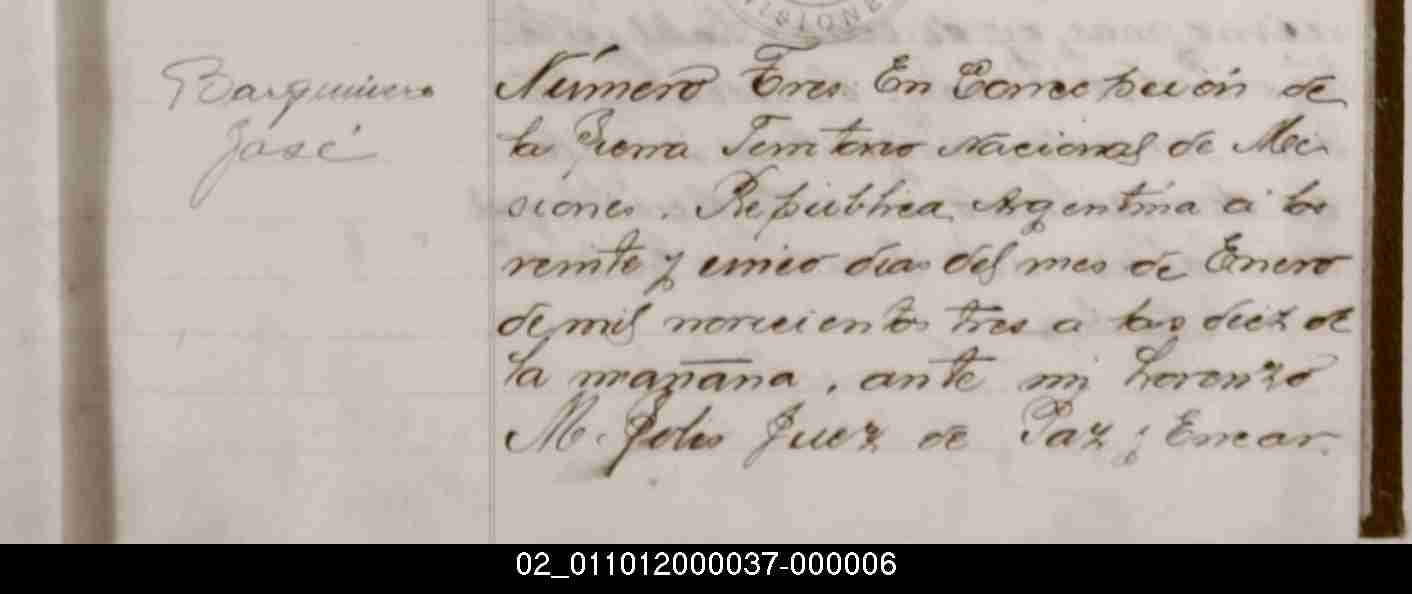 MISIONE
Barquinero
José
Número Tres En Concepcion de
la Sierra Territorio Nacional de Mi
siones. República Argentina á los
veinte y cinco dias del mes de Enero
de mil novecientos tres a las diez de
la mañana, ante mi Lorenzo
M. Solis Juez de Paz y Encar
02_011012000037-000006